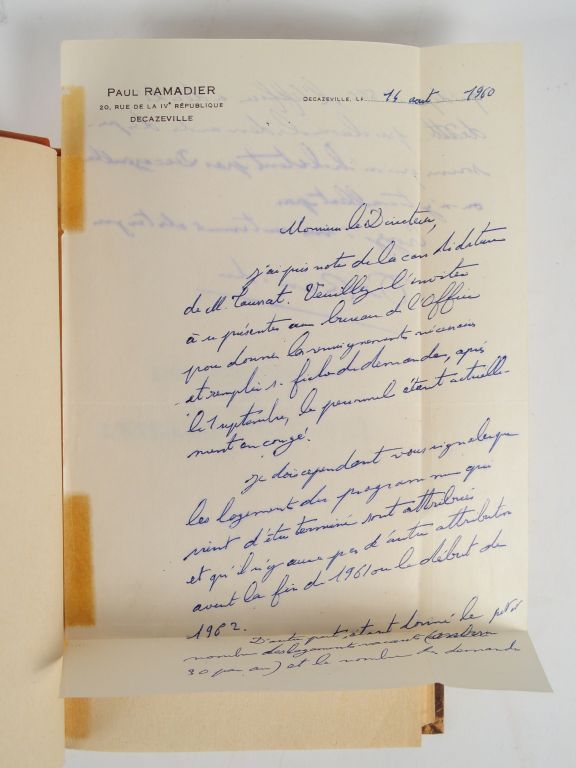 PAUL RAMADIER
20, RUE DE LA IVe RÉPUBLIQUE
DECAZEVILLE
DECAZEVILLE, LE 14 août 1960
Monsieur le Directeur,
J'ai pris note de la candidature
de M. Veuillez l'inviter
à se présenter au bureau de l'Office
pour donner les renseignements nécessaires
et remplir sa fiche de demande, après
le 1 septembre, le personnel étant actuelle-
ment en congé.
Je dois cependant vous signaler que
les logements du programme qui
vient d'être terminé sont attribués
et qu'il n'y aura pas d'autre attribution
avant la fin de 1961 ou le début de
1962.
D'autre part, étant donné le petit
nombre des logements vacants (environ
30 par an) et le nombre des demandes